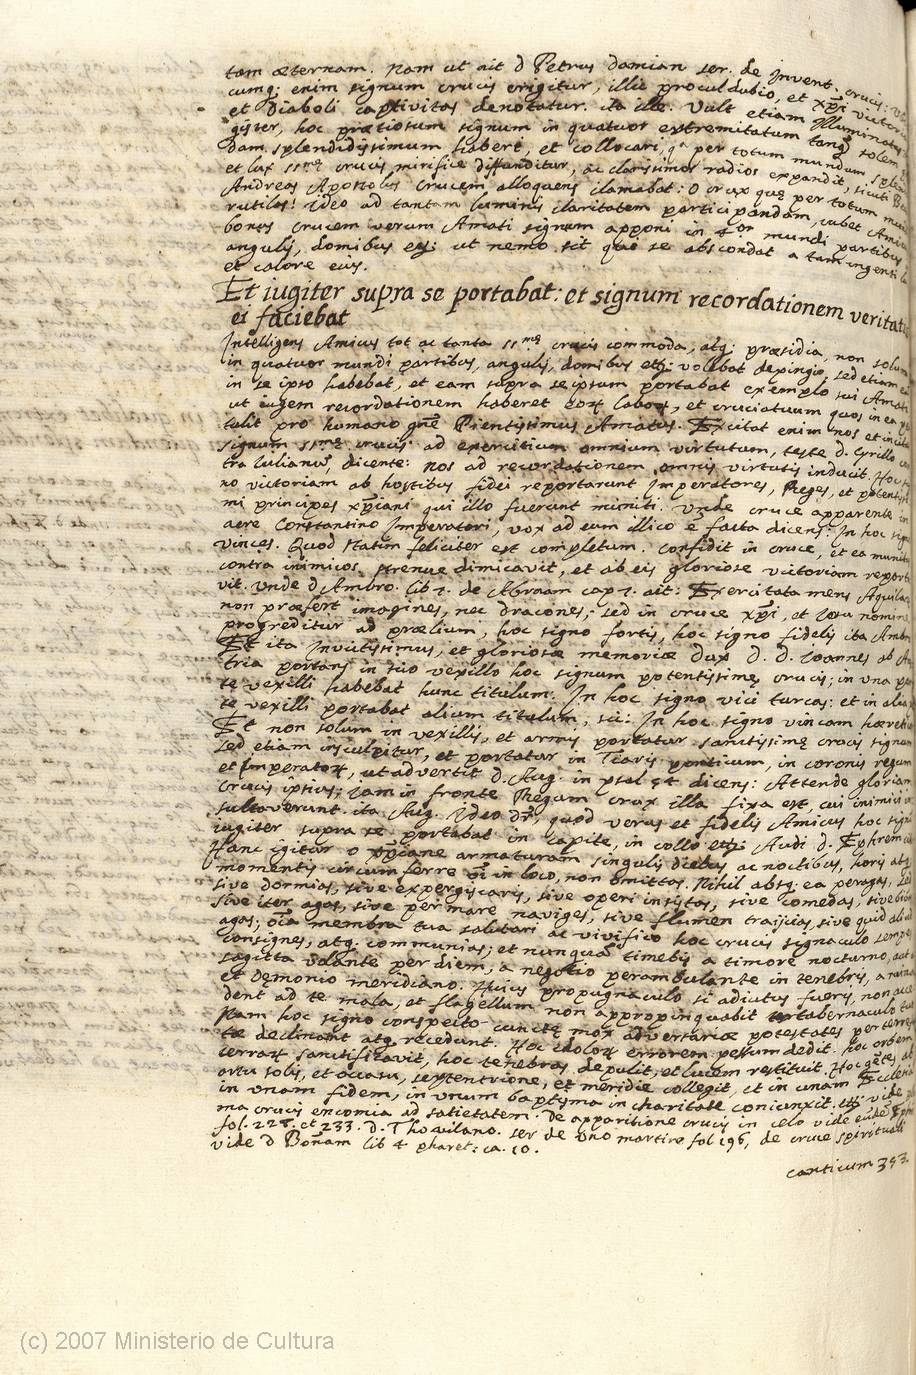 tam æternam. Nam ut ait d Petrus damian ser. de Invent. crucis: Ubi
cumq; enim signum crucis erigitur, illic procul dubio, et xp̄i victoria
et Diaboli captivitas denotatur. ita ille. Vult etiam Illuminatus
gister, hoc prætiosum signum in quatuor extremitatum tanq̄ solem
dam splendidissimum haberi, et collocari, qᵃ per totum mundum splen
et lux ssᵐę crucis mirifice diffunditur, ac clarissimos radios expandit, sicuti B.
Andreas Apostolus Crucem alloquens clamabat: O crux quę per totum mun
rutilas! Ideo ad tantam luminis claritatem participandam, iubet Amicus
bonus crucem verum Amati signum apponi in 4ᵒʳ mundi partibus
angulis, domibus etc: ut nemo sit qui se abscondat a tam ingenti lu
et calore eius.
Et iugiter supra se portabat: et signum recordationem veritatis
ei faciebat
Intelligens Amicus tot ac tanta ssᵐę crucis commoda, atq; præsidia, non solum
in quatuor mundi partibus, angulis, domibus etc: volebat depingi, sed etiam ea
in se ipso habebat, et eam supra seipsum portabat exemplo sui Amati
ut iugem recordationem haberet eoꝝ laboꝝ, et cruciatuum quos in ea per
tulit pro humano gn̄e Pientissimus Amatus. Excitat enim nos et incitat
signum ssᵐę crucis ad exercitium omnium virtutum, teste d. Cyrillo con
tra Iulianū, dicente: nos ad recordationem omnis virtutis inducit. Hoc sig
no victoriam ab hostibus fidei reportarunt Imperatores, Reges, et potentissi
mi principes xp̄iani qui illo fuerunt muniti. Unde cruce apparente in
aere Constantino Imperatori, vox ad eum illico ē facta dicens: In hoc signo
vinces. Quod statim feliciter est completum. confidit in cruce, et ea munitus
contra inimicos strenue dimicavit, et ab eis gloriose victoriam reporta
vit. Unde d Ambro. lib 2. de Abraam cap 7. ait: Exercitata mens Aquilas
non præfert imagines, nec dracones; sed in cruce xp̄i, et Iesu nomine
progreditur ad prælium, hoc signo fortis, hoc signo fidelis ita Ambro.
Et ita Invictissimus, et gloriosæ memoriæ Dux D. D. Ioannes ab Aus
tria portans in suo vexillo hoc signum potentissimę crucis; in una par
te vexilli habebat hunc titulum. In hoc signo vici turcas: et in alia par
te vexilli portabat alium titulum, sci: In hoc signo vincam hæreticos
Et non solum in vexillis, et armis portatur sanctissimę crucis signum
sed etiam insculpitur, et portatur in Tiaris ponticum, in coronis regum
et Imperatoꝝ, ut advertit d. Aug. in psal 54 dicens: Attende gloriam
Crucis ipsius; iam in fronte Regum crux illa fixa est, cui inimici in
sultaverunt. ita Aug. Ideo dr̄, quod verus et fidelis Amicus hoc signum
iugiter supra se portabat in capite, in collo etc: Audi d. Ephrem
Hanc igitur o xp̄iane armaturam singulis diebus ac noctibus, horis atq;
momentis circumferre oī in loco, non omittas. Nihil absq; ea peragas, sed
sive dormias, sive expergiscaris, sive operi insistas, sive comedas, sive bibas
sive iter agas, sive per mare naviges, sive flumen traijcias, sive quid aliud
agas; oīa membra tua salutari ac vivifico hoc crucis signaculo semper
consignes, atq; communias; et nunquā timebis a timore nocturno, aut a
sagitta volante per diem, a negotio perambulante in tenebris, a ruina
et Dęmonio meridiano. Huius propugnaculo si adiutus fueris, non acce
dent ad te mala, et flagellum non appropinquabit tabernaculo tuo
Nam hoc signo conspecto cunctę mox adversariæ potestates perterre
tæ declinant atq; recedunt. Hoc idoloꝝ errorem pessum dedit. hoc orbem
terraꝝ sanctificavit, hoc tenebras depulit, et lucem restituit. Hoc gētes ab
ortu solis, et occasu, septentrione, et meridie collegit, et in unam Ecclesia
in unam fidem, in unum baptisma in charitate coniunxit. etc vide plu
ma crucis encomia ad satietatem. De apparitione crucis in celo vide eundē Ephr
fol. 228. et 233. D. Tho. vilano. ser de uno martire fol 196, de cruce spirituali
vide d Bonam lib 4 pharet: ca. 10.
canticum 353.